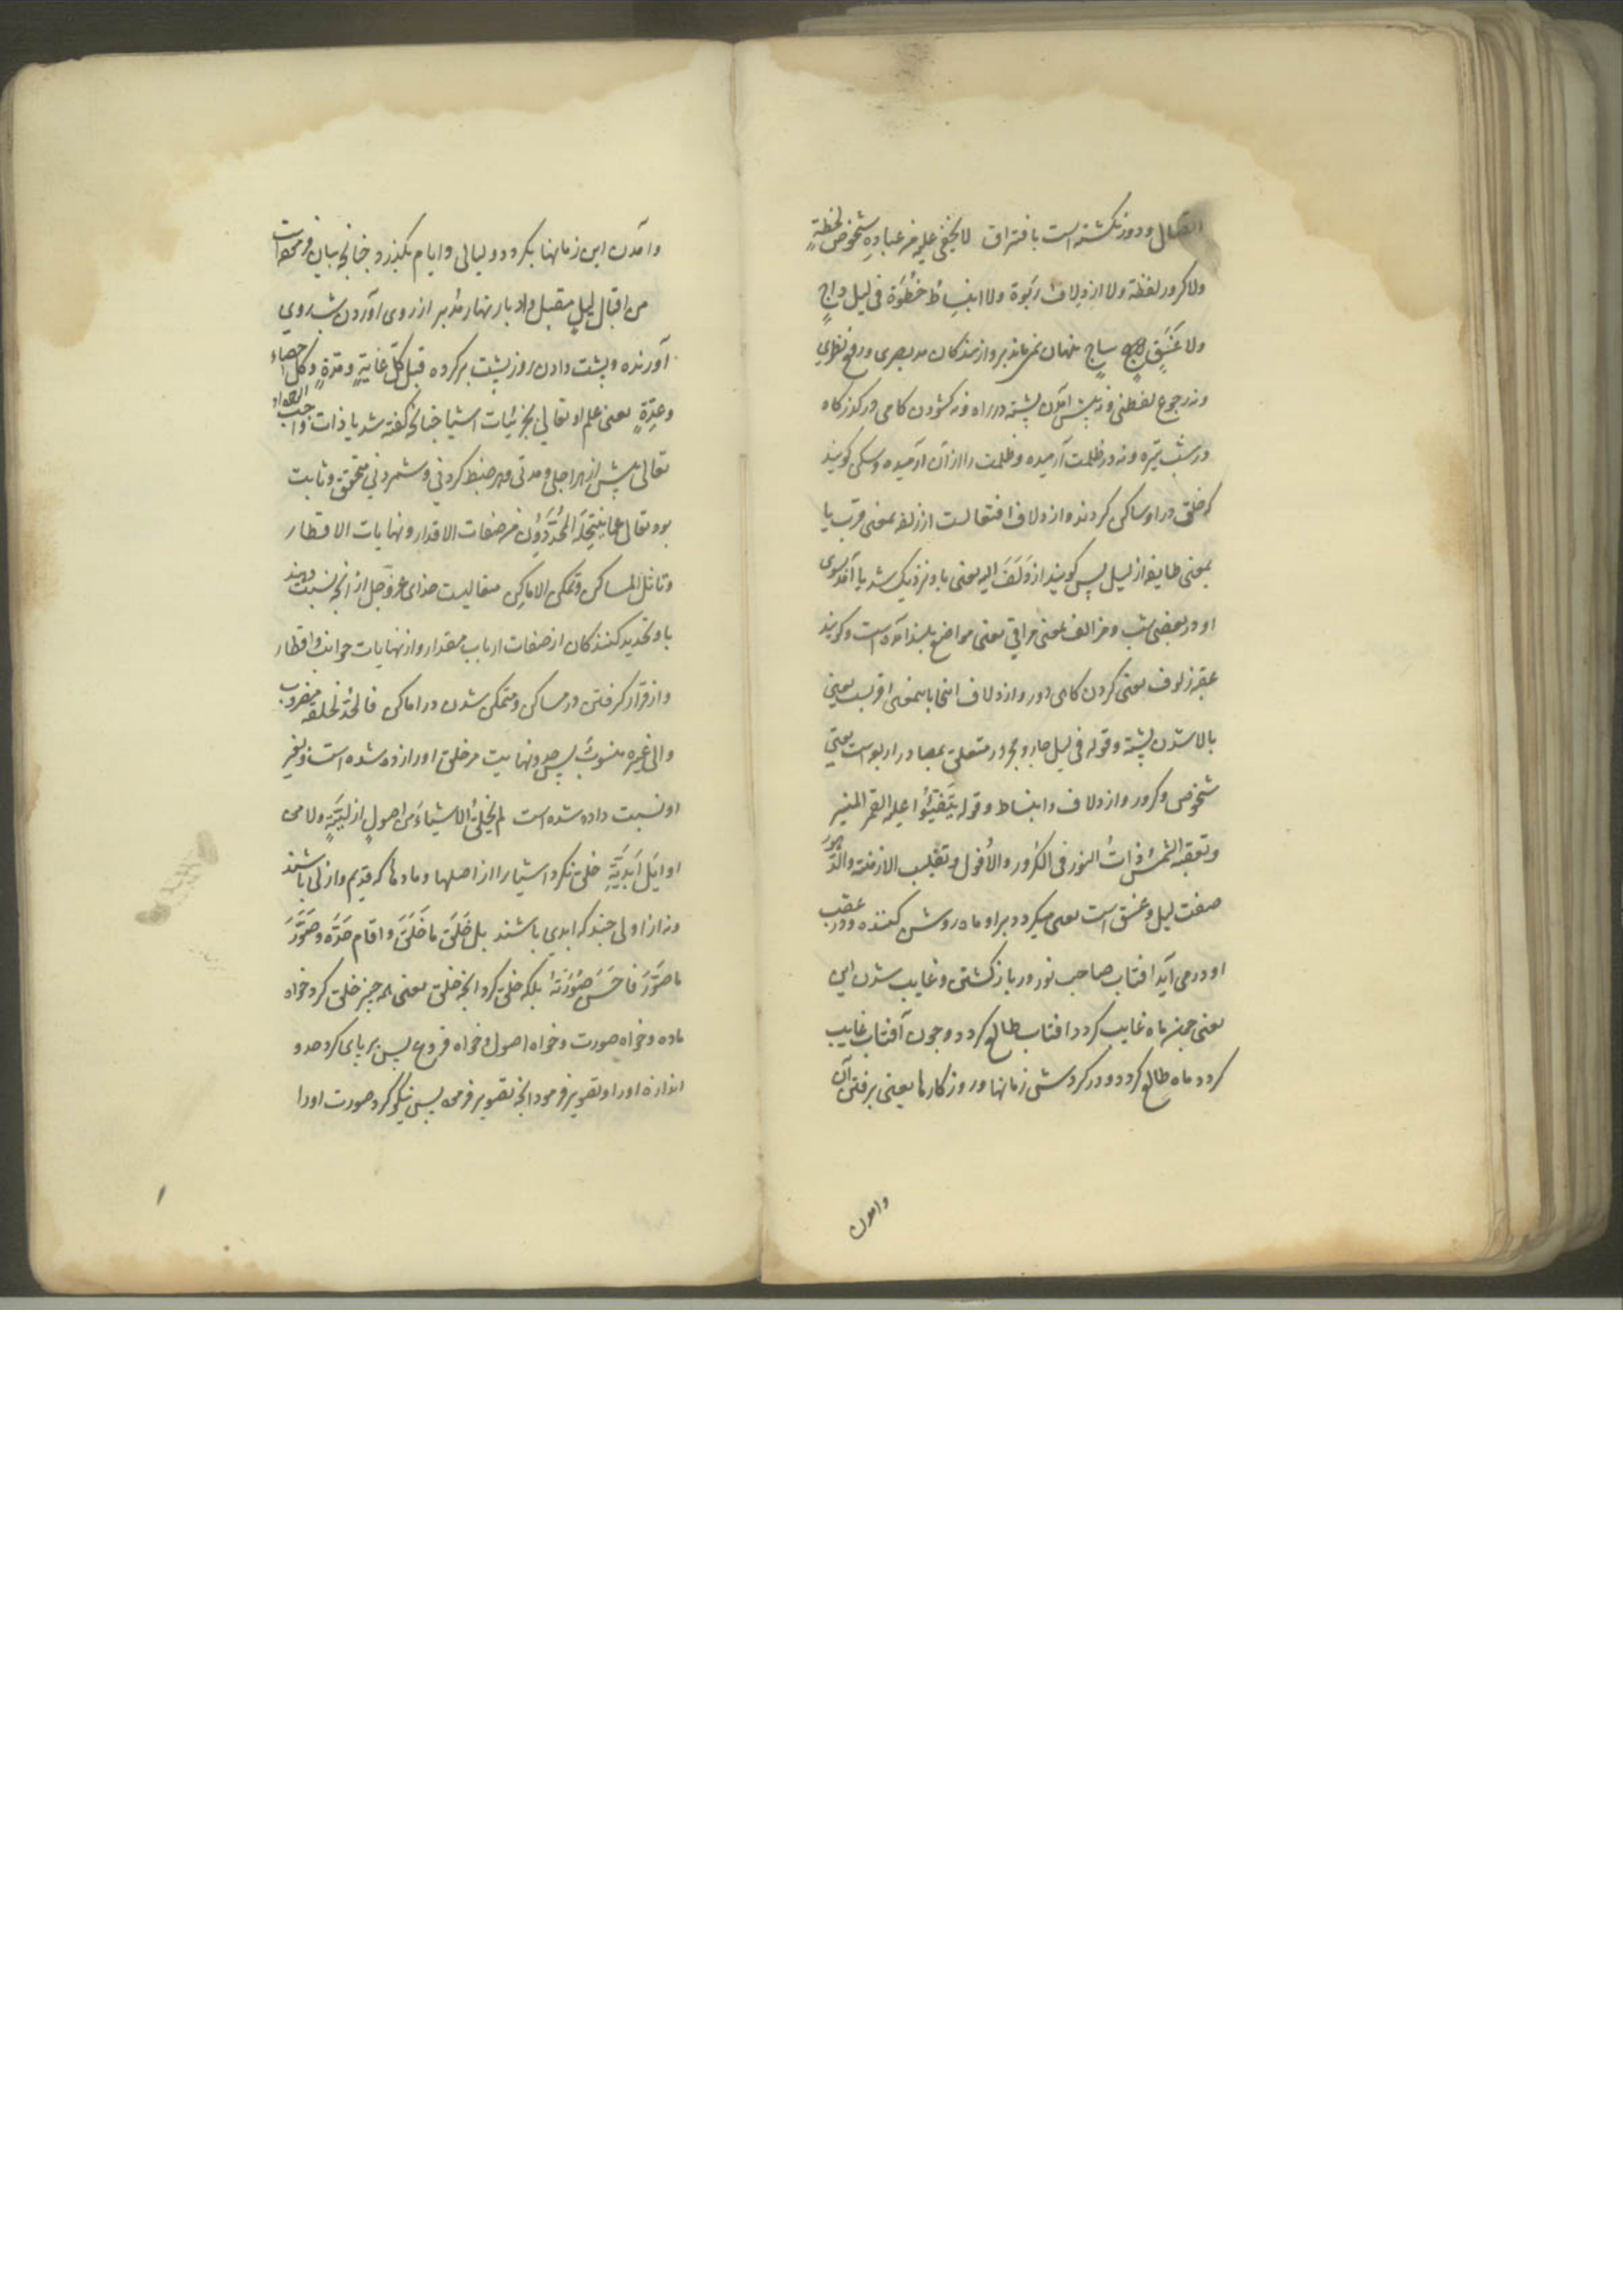 اتصال ودور نکشته است بافتراق لا یخفی علیه من عباده شخوص لحظة
ولا کرور لفظة ولا ازدلاف ربوة ولا انبساط خطوة فی لیل داج
ولا غسق ساج پنهان نمی ماند برو از بندکان مد بصری ورفع نظری
ونه رجوع لفظی ونه پیش آمدن پشته در راه ونه کشودن کامی در کذرکاه
در شب تیره ونه در ظلمت آرمیده وظلمت را از آن آرمیده وساکن کویند
که خلق در او ساکن کردند وازدلاف افتعالست از زلفه بمعنی قرب یا
بمعنی طایفه از لیل پس کویند ازدلف الیه یعنی باو نزدیک شد یا آمد بسوی
او در بعضی شب ومزالف بمعنی مراقی یعنی مواضع بلند آمده است وکویند
عقبه زلوف یعنی کردن کاهی دور وازدلاف اینجا باینمعنی اقربست یعنی
بالا شدن پشته وقوله فی لیل جار ومجرور متعلق بمصادر اربعه است یعنی
شخوص وکرور وازدلاف وانبساط وقوله یتفیؤا علیه القمر المنیر
وتعقبه الشمس ذات النور فی الکرور والأفول وتقلیب الازمنة والدهور
صفت لیل وغسق است یعنی میکردد بر او ماه روشن کننده ودر عقب
او در می آید افتاب صاحب نور در باز کشتن وغایب شدن این
یعنی چون ماه غایب کردد افتاب طالع کردد وچون آفتاب غایب
کردد ماه طالع کردد ودر کردش زمانها وروزکارها یعنی برفتن آن
وامدن
وآمدن این زمانها بکردد ولیالی وایام بکذرد چنانچه بیان فرموده است
من اقبال لیل مقبل وادبار نهار مدبر از روی آوردن شب روی
آورنده وپشت دادن روز پشت بر کرده قبل کل غایة ومدة وکل احصاء
وعدة یعنی علم او تعالی بجزئیات اشیا چنانچه کفته شد یا ذات واجب الوجود
تعالی پیش از هر اجلی ومدتی وهر ضبط کردنی وشمردنی متحقق وثابت
بود تعالی عما ینتحله المحددون من صفات الاقدار ونهایات الاقطار
وتاثل المساکن وتمکن الاماکن متعالیست خدای عز وجل از آنچه نسبت دهند
باو تحدید کنندکان از صفات ارباب مقدار واز نهایات جوانب واقطار
واز قرار کرفتن در مساکن ومتمکن شدن در اماکن فالحد لخلقه مضروب
والی غیره منسوب پس حد ونهایت مر خلق او را زده شده است وبغیر
او نسبت داده شده است لم یخلق الاشیاء من اصول ازلیة ولا من
اوایل ابدیة خلق نکرد اشیا را از اصلها ومادها که قدیم وازلی باشند
ونه از اولی چند که ابدی باشند بل خلق ما خلق واقام حده وصور
ما صور فاحسن صورته بلکه خلق کرد آنچه خلق یعنی همه چیز خلق کرد خواه
ماده وخواه صورت وخواه اصول وخواه فروع پس بر پای کرد حد و
اندازه او را وتصویر فرمود آنچه تصویر فرموده پس نیکو کرد صورت او را